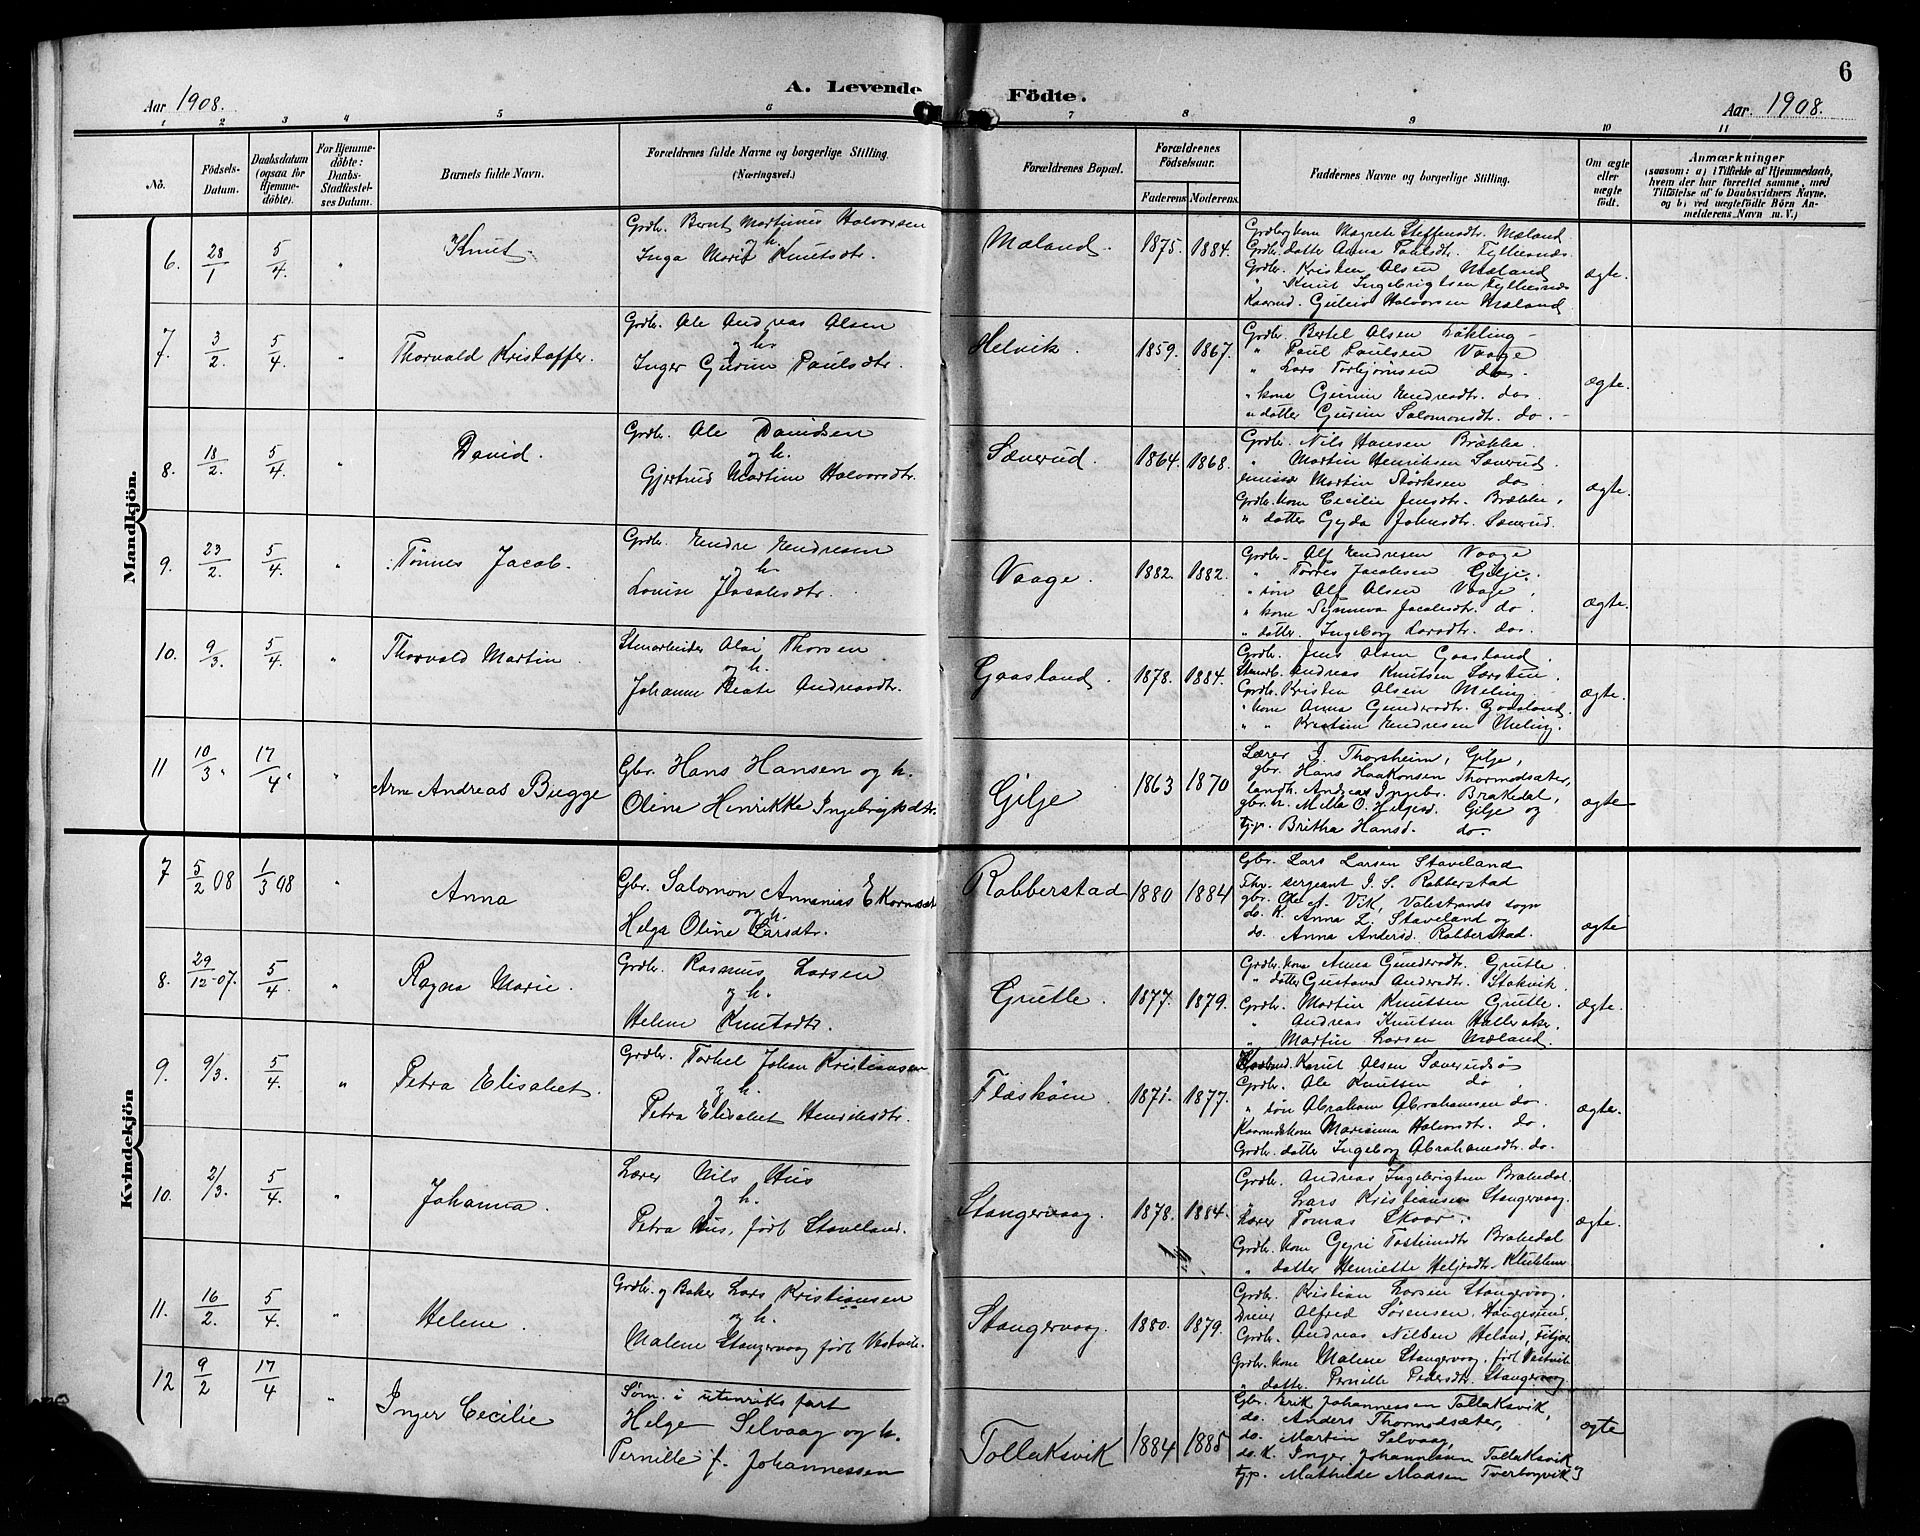 6
Aar 1908.
A. Levende Födte.
Aar 1908.
1 2 3 4 5 6 7 8 9 10 11
No.
Födsels-Datum.
Daabsdatum (ogsaa for Hjemme-döbte).
For Hjemme-döbte: Daabs-Stadfæstel-ses Datum.
Barnets fulde Navn.
Forældrenes fulde Navne og borgerlige Stilling. (Næringsvei.)
Forældrenes Bopæl.
Forældrenes Födselsaar.
Faderens Moderens.
Faddernes Navne og borgerlige Stilling.
Om ægte eller uægte födt.
Anmærkninger
(saasom: a) i Tilfælde af Hjemmedaab, hvem der har forrettet samme, med Tilföielse af to Daabsvidners Navne, og b) ved uægtefödte Börn An-melderens Navn m. V.)
Mandkjön.
6. 28/1 5/4 " Knut.
Grdbr. Bernt Martinus Halvorsen
og h.
Inga Marie Knutsdtr.
Mæland. 1875. 1884.
Grdbrkone Magrete Steffensdtr. Mæland.
Grdbr. datter Anna Paulsdtr. Fyllesnæs.
Grdbr. Kristen Olsen Mæland
" Knut Ingebrigtsen Fyllesnæs
Kaarmd. Gulleiv Halvorsen Mæland.
ægte.
7. 3/2. 5/4. " Thorvald Kristoffer.
Grdbr. Ole Andreas Olsen
og h.
Inger Gurine Paulsdtr.
Helvik. 1859. 1867.
Grdbr Bertel Olsen Løkling
" Paul Paulsen Vaage
" Lars Torbjørnsen do.
" kone Gurine Endresdtr. do.
" datter Gurine Salomonsdtr. do.
ægte.
8. 18/2. 5/4. " David.
Grdbr. Ole Davidsen
og h.
Gjertrud Martine Halvorsdtr.
Sæverud. 1864. 1868.
Grdbr. Nils Hansen Brække.
" Martin Henriksen Sæverud.
Emissær Martin Størksen do.
Grdbr. kone Cecilie Jensdtr. Brække,
" datter Gyda Johnsdtr. Sæverud.
ægte.
9. 23/2. 5/4. " Tønnes Jacob.
Grdbr. Endre Endresen
og h.
Louise Jacobsdtr.
Vaage. 1882. 1882.
Grdbr. Alf Endresen Vaage
" Torres Jacobsen Gilje.
" søn Alf Olsen Vaage,
" kone Synneva Jacobsdtr. do.
" datter. Ingeborg Larsdtr. do.
ægte.
10. 9/3. 5/4. " Thorvald Martin
Stenarbeider Olai Thorsen
og h.
Johanne Beate Andreasdtr.
Gaasland. 1878. 1884.
Grdbr. Jens Olsen Gaasland,
Stenarb. Andreas Knutsen
Grdbr. Kristen Olsen Meling.
" kone Anna Gundersdtr. Gaasland.
" " Kristine Endresen Meling.
ægte.
11 10/3. 17/4. " Arne Andreas Bugge
Gbr. Hans Hansen og h.
Oline Henrikke Ingebrigtsdtr.
Gilje 1863 1870
Lærer J. Thorsheim, Gilje,
gbr. Hans Haakonsen Thormodsæter,
landh. Andreas Ingebr. Brakedal,
gbr. k. Milla O. Helgesd. Gilje og
tjp. Britha Hansd. do.
ægte
Kvindekjön
7 5/2 08 1/3 08 " Anna
Gbr. Salomon Annanias Ekornsæt
og h.
Helga Oline Larsdtr.
Robberstad 1880 1884
Gbr. Lars Larsen Staveland
Fhv. sergeant I. S. Robberstad
gbr. Ole A. Vik, Valestrands sogn
do. k. Anna L. Staveland og
do. Anna Andersd. Robberstad.
ægte
8. 29/12-07. 5/4. " Ragna Marie.
Grdbr. Rasmus Larsen
og h.
Helene Knutsdtr.
Grutle. 1877. 1879.
Grdbr. kone Anna Gundersdtr. Grutle.
" datter Gustava Andersdtr. Stokvik.
Grdbr. Martin Knutsen Grutle.
" Andreas Knutsen Halleraker.
" Martin Larsen Mæland.
ægte.
9. 9/3. 5/4. " Petra Elisabet.
Grdbr. Torkel Johan Kristiansen
og h.
Petra Elisabet Henriksdtr.
Flæskøen. 1871. 1877.
Kaarmd. Knut Olsen Sæverudsø
Grdbr. Ole Knutsen do.
" søn Abraham Abrahamsen do.
Kaarmdskone Marianna Halvorsdtr. do.
Grdbr. datter Ingeborg Abrahamsdtr. do.
ægte.
10. 2/3. 5/4. " Johanna.
Lærer Nils Hus
og h.
Petra Hus, født Staveland.
Stangervaag. 1878. 1884.
Grdbr. Andreas Ingebrigtsen Brakedal.
" Lars Kristiansen Stangervaag.
Lærer Tomas Skaar.
Grdbr. kone Gyri Tosteinsdtr Brakedal
" datter Henriette Heljesdtr.
ægte.
11. 16/2. 5/4. " Helene.
Grdbr. og Baker Lars Kristiansen
og h.
Malene Stangervaag født Vestvik.
Stangervaag. 1880. 1879.
Grdbr. Kristian Larsen Stangervaag.
Alfred Sørensen, Haugesund,
Grdbr. Andreas Nilsen Heland, Fitjar
Grdbr. kone Malene Stangervaag. født Vestvik
" datter. Pernille Pedersdtr. Stangervaag.
12 9/2 17/4 " Inger Cecilie
Søm. i utenriks fart
Helge Selvaag og h.
Pernille f. Johannessen
Tollaksvik 1884 1885
Gbr. Erik Johannessen Tollaksvik,
do. Anders Thormodsæter,
do. Martin Selvaag
do. k. Inger Johannessen Tollaksvik
tjp. Mathilde Madsen Tverborgvik
ægte